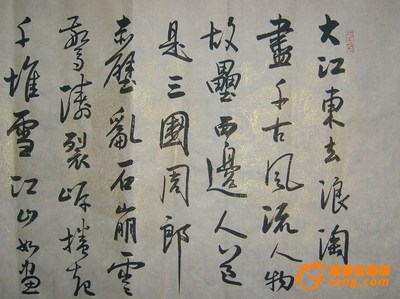 大江東去浪淘
盡千古風流人物
故壘西邊人道
是三國周郎
赤壁亂石崩雲
驚濤裂岸捲起
千堆雪江山如畫